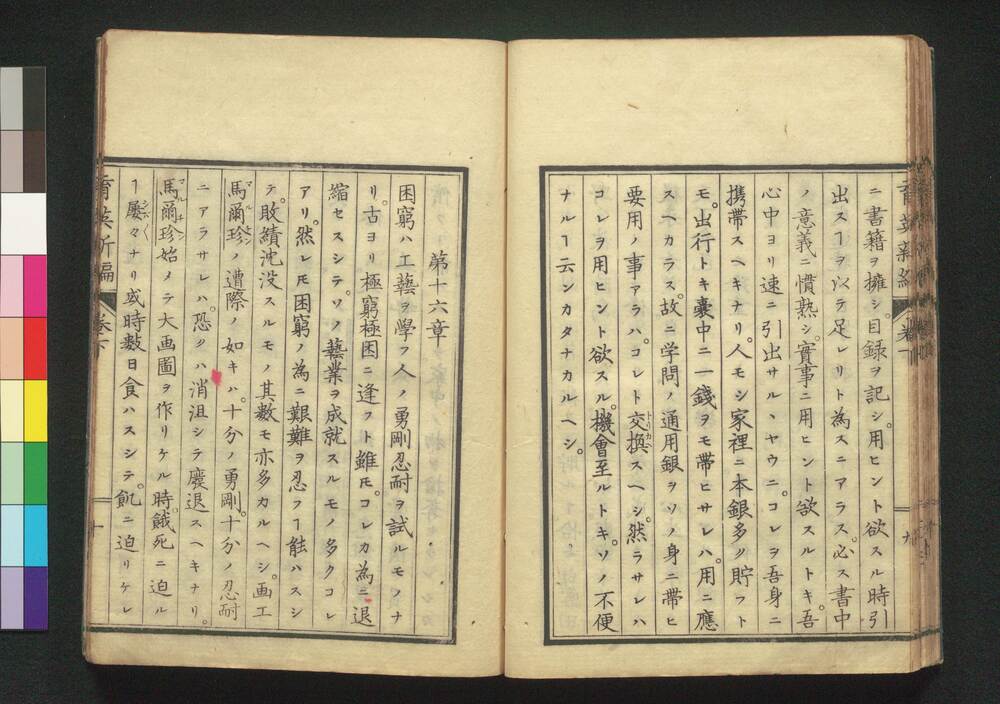 ニ書籍ヲ擁シ。目録ヲ記シ。用ヒント欲スル時引
出スヿヲ以テ足レリト為スニアラス。必ス書中
ノ意義ニ慣熟シ。實事ニ用ヒント欲スルトキ。吾
心中ヨリ速ニ引出サルヽヤウニ。コレヲ吾身ニ
携帶スヘキナリ。人モシ家裡ニ本銀多ク貯フト
モ。出行トキ嚢中ニ一錢ヲモ帶ヒサレハ。用ニ應
スヘカラス。故ニ学問ノ通用銀ヲソノ身ニ帶ヒ
要用ノ事アラハ。コレト交換スヘシ。然ラサレハ
コレヲ用ヒント欲スル。機會至ルトキソノ不便
ナルヿ云ンカタナカルヘシ。
第十六章
困窮ハ工藝ヲ學フ人ノ勇剛忍耐ヲ試ルモノナ
リ。古ヨリ極窮極困ニ逢フト雖𪜈。コレカ為ニ退
縮セスシテ。ソノ藝業ヲ成就スルモノ多クコレ
アリ。然レ𪜈困窮ノ為ニ艱難ヲ忍フヿ能ハスシ
テ。敗績沈没スルモノ其数モ亦多カルヘシ。画工
馬爾珍ノ遭際ノ如キハ。十分ノ勇剛。十分ノ忍耐
ニアラサレハ。恐クハ消沮シテ廢退スヘキナリ。
馬爾珍始メテ大画圖ヲ作リケル時。餓死ニ迫ル
ヿ屢々ナリ。或時数日食ハスシテ。飢ニ迫リケレ
育英新編
巻下
九